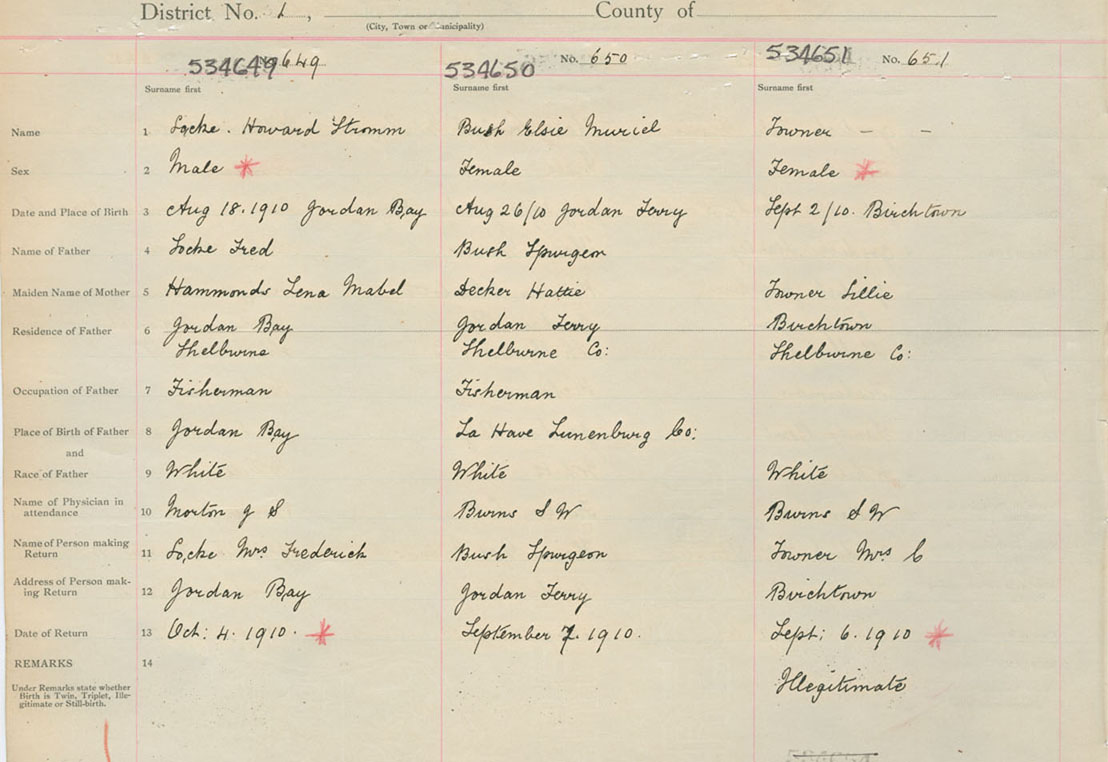 District No. 1, County of
(City, Town or Municipality)
534649 649 534650 No. 650 534651 No. 651
Surname first Surname first Surname first
Name 1 Locke. Howard Stromm Bush Elsie Muriel Towner - -
Sex 2 Male * Female Female *
Date and Place of Birth 3 Aug 18. 1910 Jordan Bay Aug 26/10 Jordan Ferry Sept 2/10. Birchtown
Name of Father 4 Locke Fred Bush Spurgeon
Maiden Name of Mother 5 Hammonds Lena Mabel Decker Hattie Towner Lillie
Residence of Father 6 Jordan Bay Jordan Ferry Birchtown
Shelburne Shelburne Co: Shelburne Co:
Occupation of Father 7 Fisherman Fisherman
Place of Birth of Father 8 Jordan Bay La Have Lunenburg Co:
and
Race of Father 9 White White White
Name of Physician in
attendance 10 Morton J S Burns S W Burns S W
Name of Person making
Return 11 Locke Mrs Frederick Bush Spurgeon Towner Mrs C
Address of Person mak-
ing Return 12 Jordan Bay Jordan Ferry Birchtown
Date of Return 13 Oct: 4. 1910. * September 7. 1910. Sept: 6. 1910 *
REMARKS 14
Under Remarks state whether
Birth is Twin, Triplet, Ille-
gitimate or Still-birth.
Illegitimate